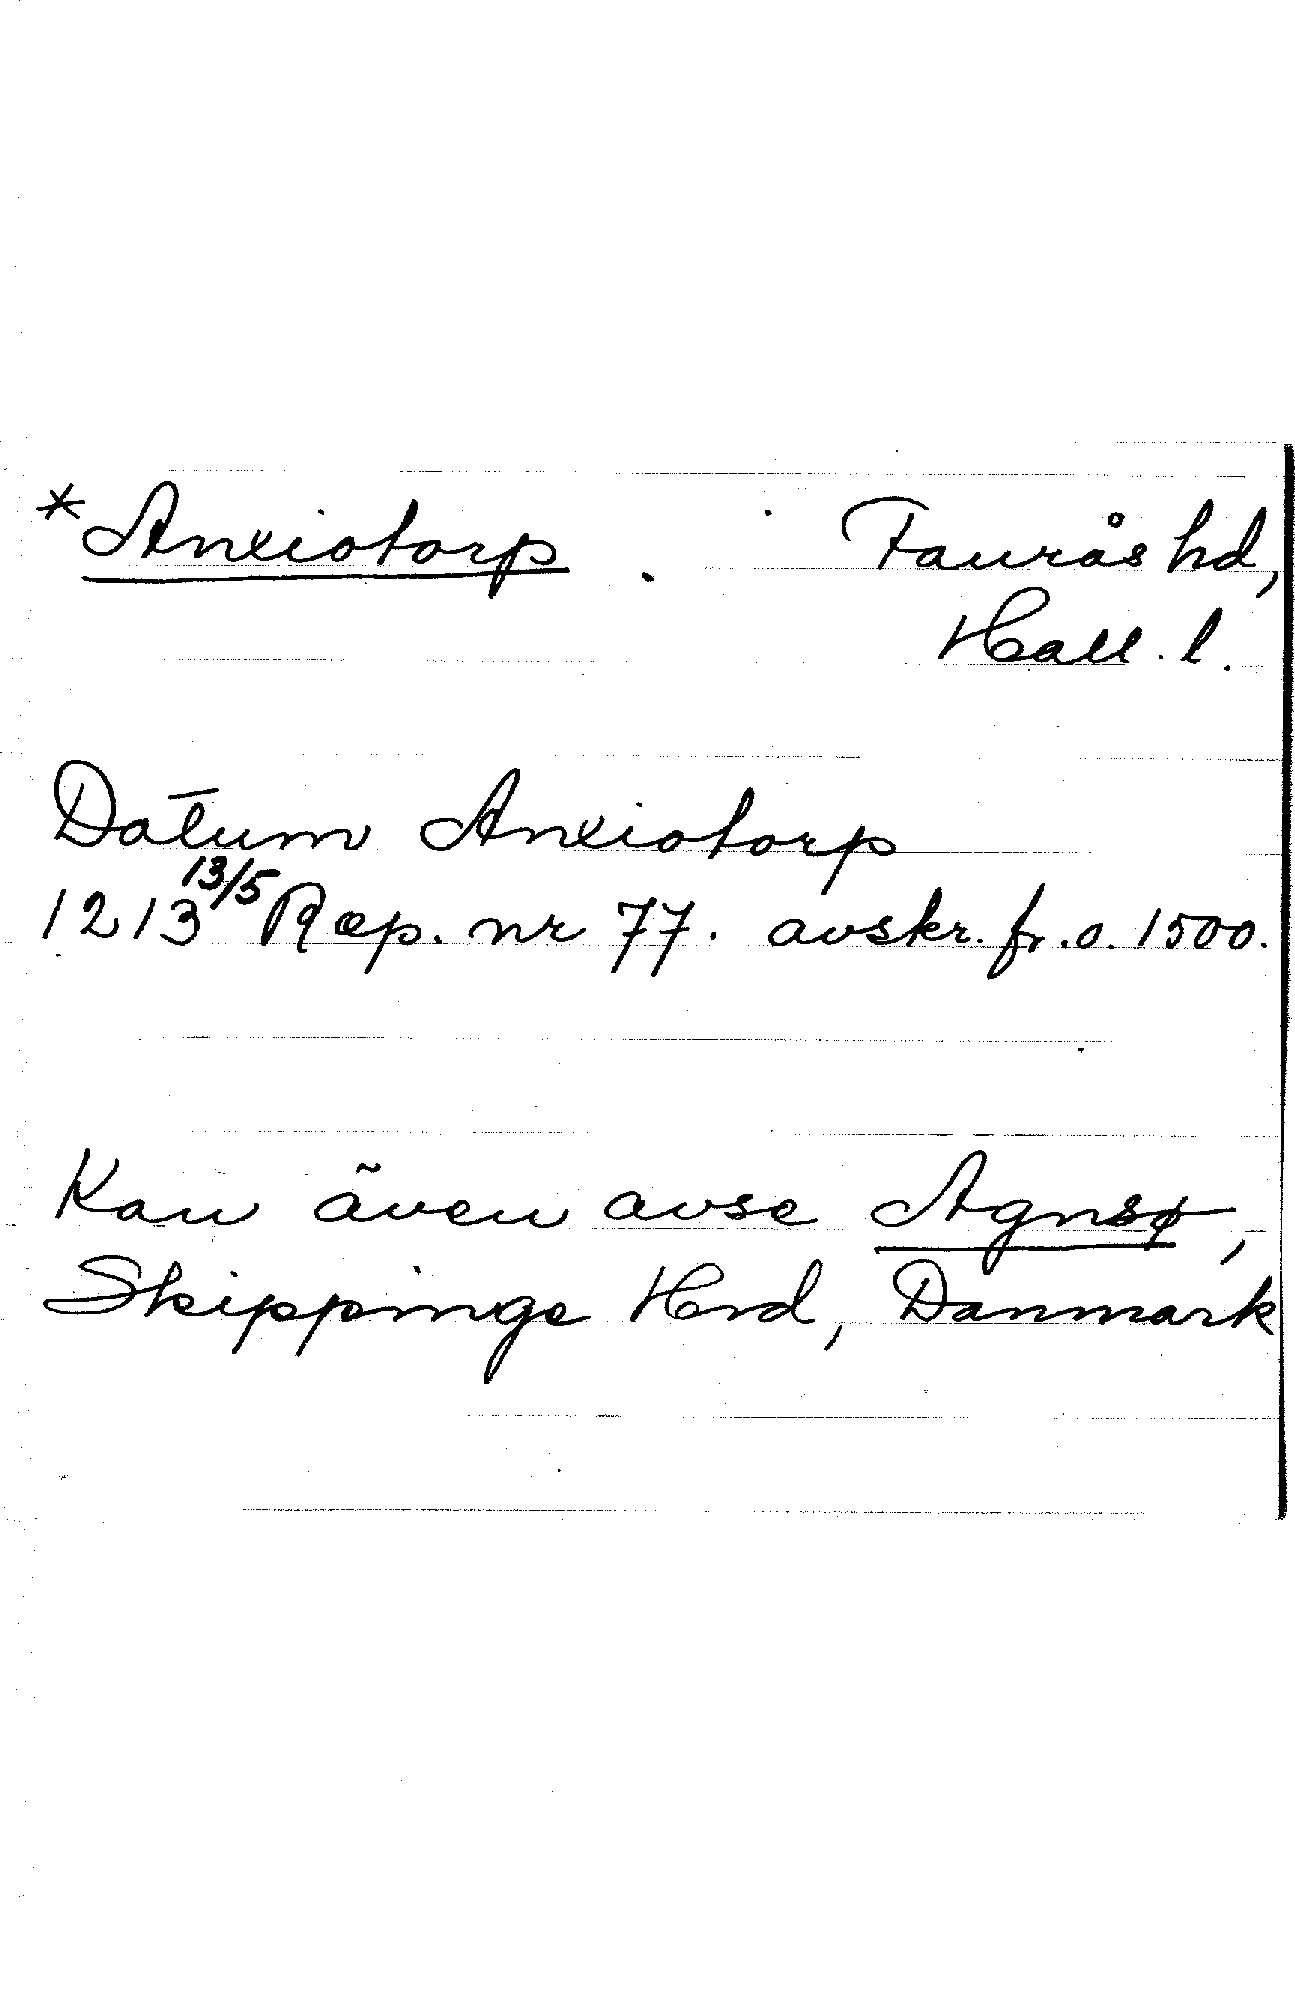 *Anxiotorp. Faurås hd,
Hall. l.
Datum Anxiotorp
1213 13/5 Ræp. nr 77. avskr. fr. o. 1500.
Kan även avse Agnsø,
Skippinge Hrd, Danmark